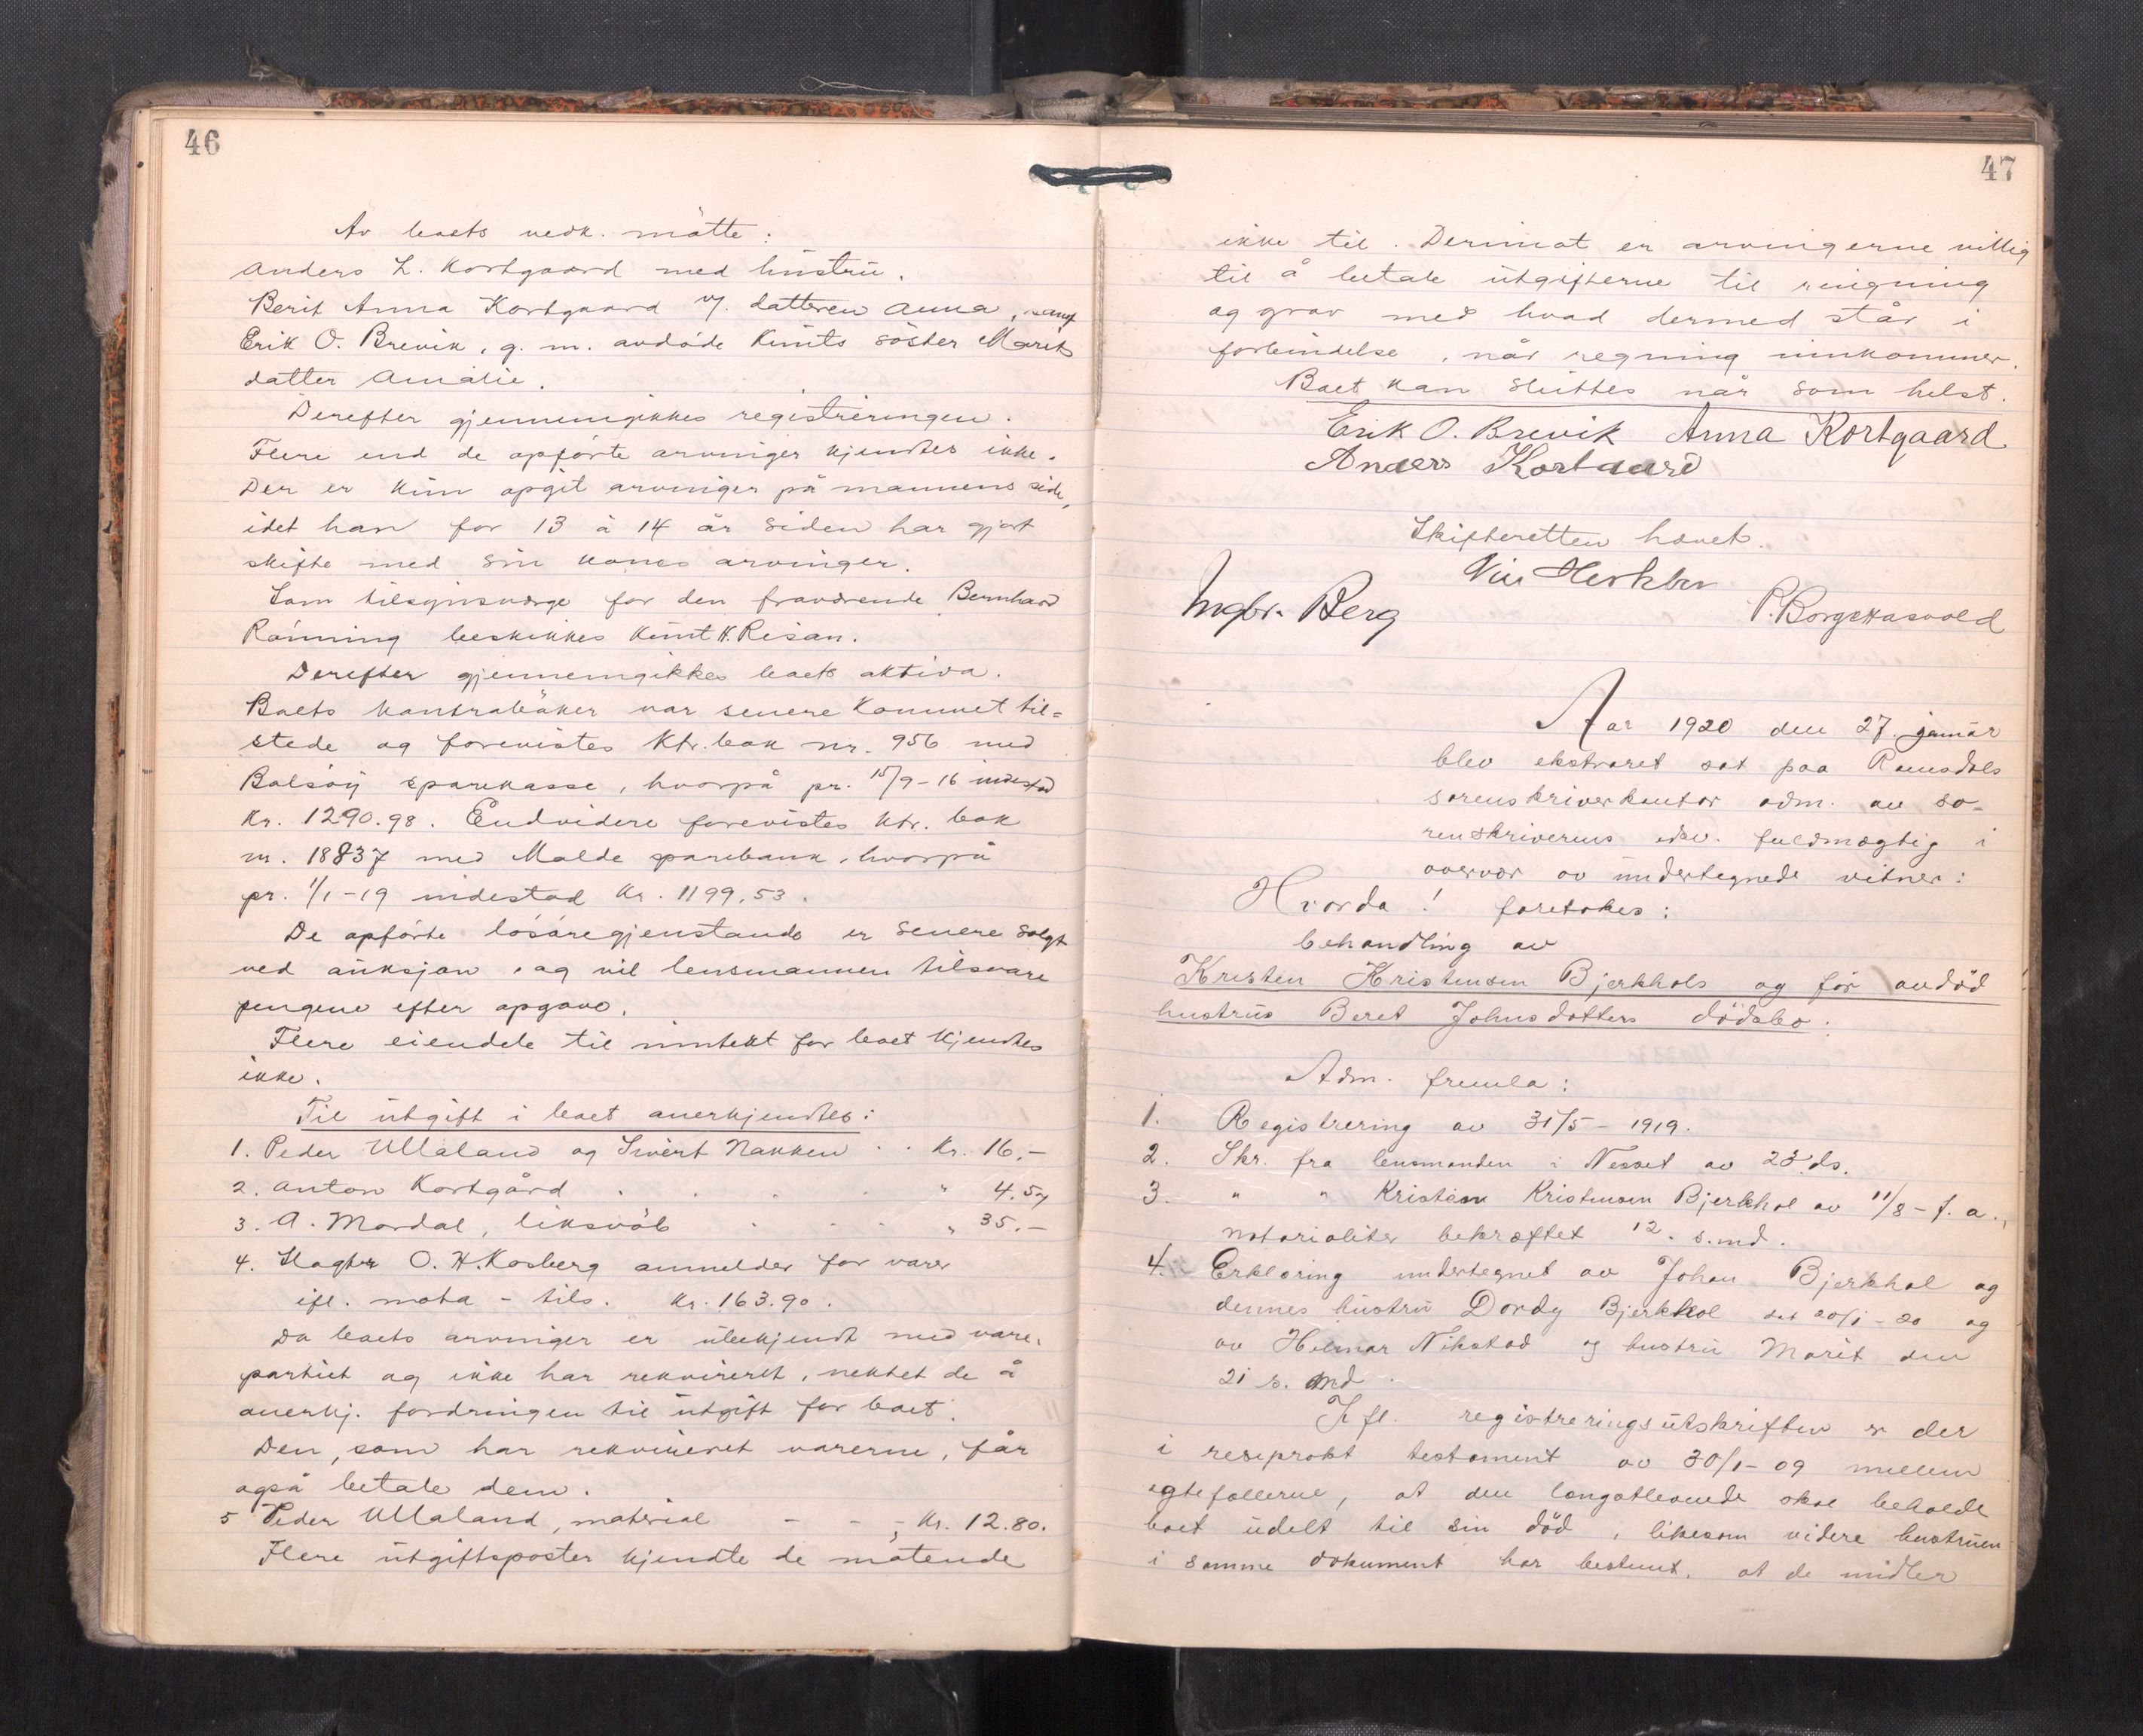 46
Av boets vedk. mötte:
Anders L. Kortgaard med hustru.
Berit Anna Kortgaard v/ datteren Anna, samt
Erik O. Brevik, g. m. avdøde Knuts söster Marits
datter Amalie.
Derefter gjennemgikkes registreringen.
Flere end de opførte arvinger kjendtes ikke.
Der er kun opgit arvinger på mannens side,
idet han for 13 à 14 år siden har gjort
skifte med sin kones arvinger.
Som tilsynsverge for den fraværende Bernhard
Rønning beskikkes Knut K. Risan.
Derefter gjennemgikkes boets aktiva.
Boets kontrabøker var senere kommet til=
stede og forevistes ktr.bok nr. 956 med
Bolsøy sparekasse, hvorpå pr. 15/9-16 indestod
kr. 1290.98. Endvidere forevistes ktr. bok
nr. 18837 med Molde sparebank, hvorpå
pr. 1/1-19 indestod kr. 1199,53.
De opførte løsøregjenstande er senere solgt
ved auksjon, og vil lensmannen tilsvare
pengene efter opgave.
Flere eiendele til inntekt for boet kjendtes
ikke.
Til utgift i boet anerkjendtes:
1. Peder Ullaland og Sivert Nakken . . kr. 16.-
2. Anton Kortgård . . . . " 4.50
3. A. Mordal, liksvøb . . . " 35.-
4. O. H. Kosberg anmelder for varer
ifl. nota - tils. kr. 163.90.
Da boets arvinger er ubekjendt med vare-
partiet og ikke har rekvireret, nektet de å
anerkj. fordringen til utgift for boet.
Den, som har rekvireret varerne, får
også betale dem.
5 Peder Ullaland, material - - - kr. 12.80.
Flere utgiftsposter kjendte de møtende
47
ikke til. Derimot er arvingerne villig
til å betale utgifterne til ringning
og grav med hvad dermed står i
forbindelse, når regning innkommer.
Boet kan sluttes når som helst.
Erik O. Brevik Anna Kortgaard
Anders Kortgaard
Skifteretten hævet.
Ingbr. Berg
Aar 1920 den 27. januar
blev ekstraret sat paa Romsdals
sorenskriverkontor adm. av so-
renskriverens edsv. fuldmægtig i
overvær av undertegnede vitner:
Hvorda! foretokes:
behandling av
Kristen Kristensen Bjerkhols og før avdöd
hustrus Beret Johnsdatters dödsbo:
Adm. fremla:
1. Registrering av 31/5-1919.
2. Skr. fra lensmanden i Nesset av 23.ds.
3. " " Kristian Kristensen Bjerkhol av 11/8-f.a.,
notorialiter bekræftet 12. s.md.
4. Erklæring undertegnet av Johan Bjerkhol og
dennes hustru Dordy Bjerkhol det 20/1-20 og
av Hilmar Nikstad og hustru Marit den
21 s. md.
Ifl. registreringsutskriften er der
i resiprokt testament av 30/1-09 mellem
egtefællerne, at den længstlevende skal beholde
boet udelt til sin död, likesom videre hustruen
i samme dokument har bestemt, at de midler